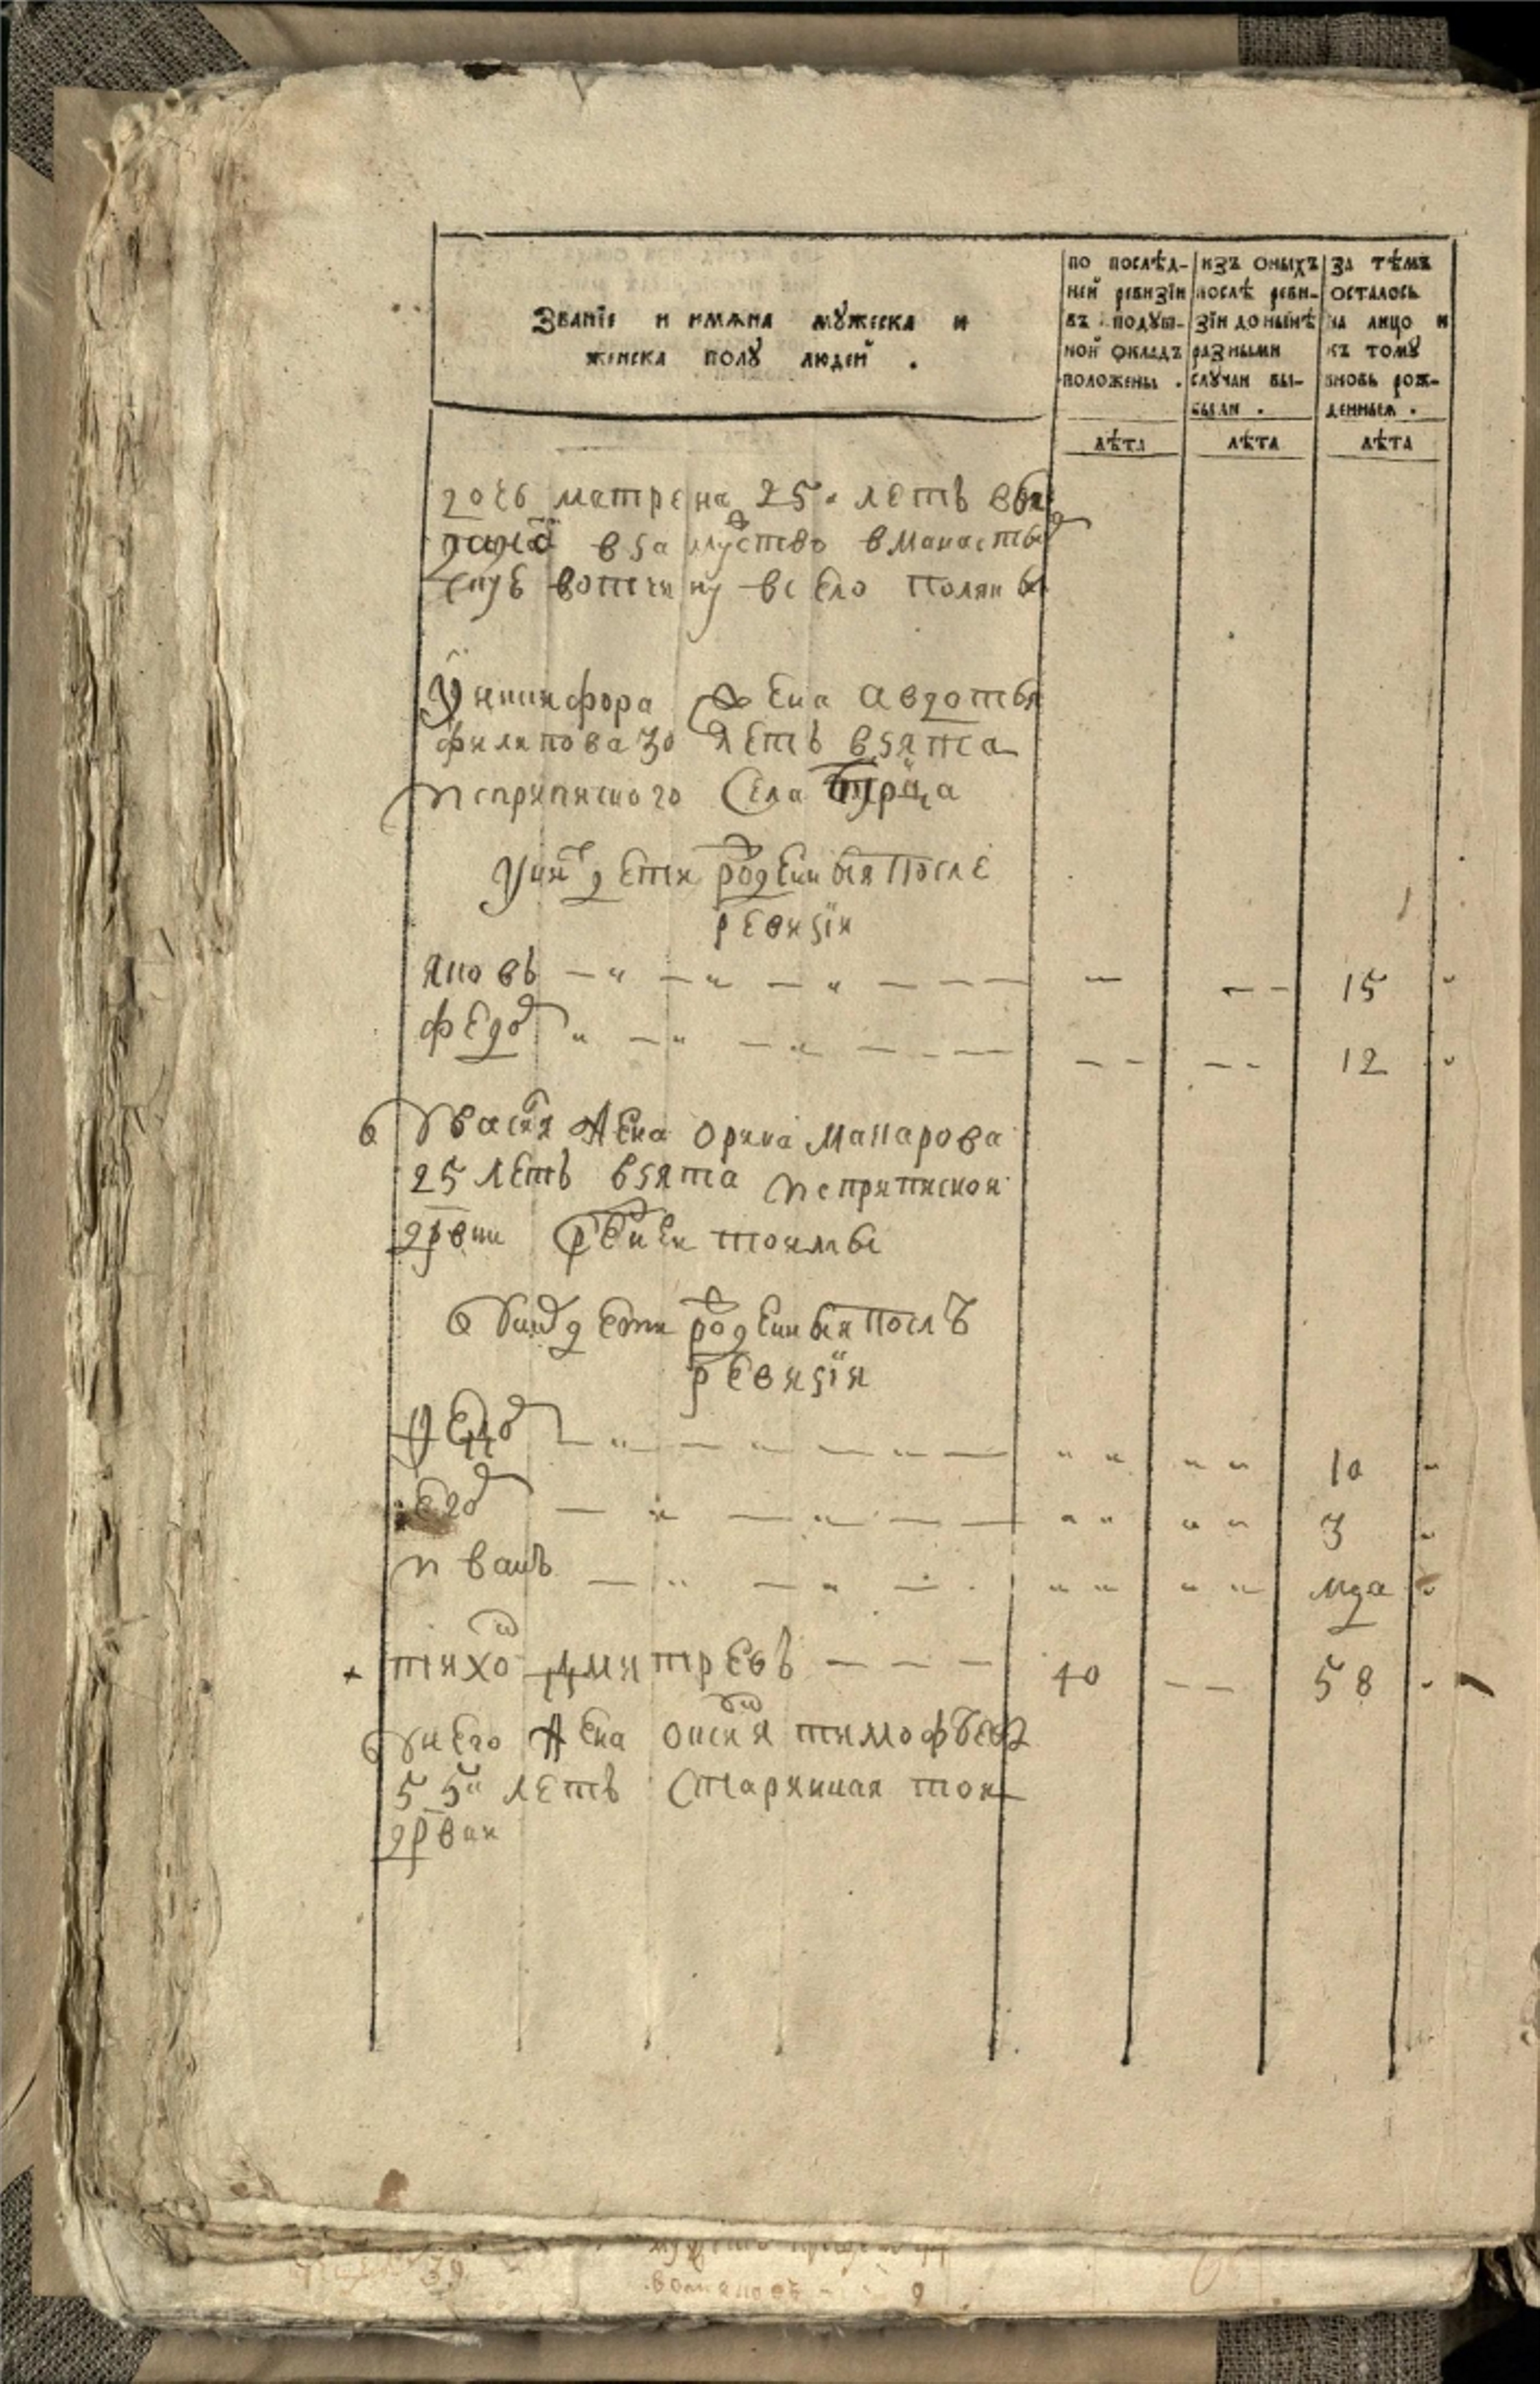 Званїе и имѧна мꙋжеска и
женска полꙋ людей .
по послѣд-
ней ревизїи
въ подꙋш-
ной окладъ
положены .
изъ оныхъ
послѣ реви-
зїи до нынѣ
разными
слꙋчаи вы-
были .
за тѣмъ
осталось
на лицо и
къ томꙋ
вновь рож-
денныѧ .
лѣта
лѣта
лѣта
дочь матрена 25 летъ выдана
в замуство в манастыр
скую вотчину в село поляны
У никифора жена авдотья
филипова 30 летъ взята
ис припиского села
у них дети рожденныя после
ревизїи
яковъ 15
федор 12
У василя жена орина макарова
25 летъ взята ис приписной
дрвни
У них дети рожденныя послѣ
ревизїи
федор 10
егор 3
иванъ мца
тихон дмитревъ 40 58
У него жена тимофѣева
55 летъ старинная той
дрвни